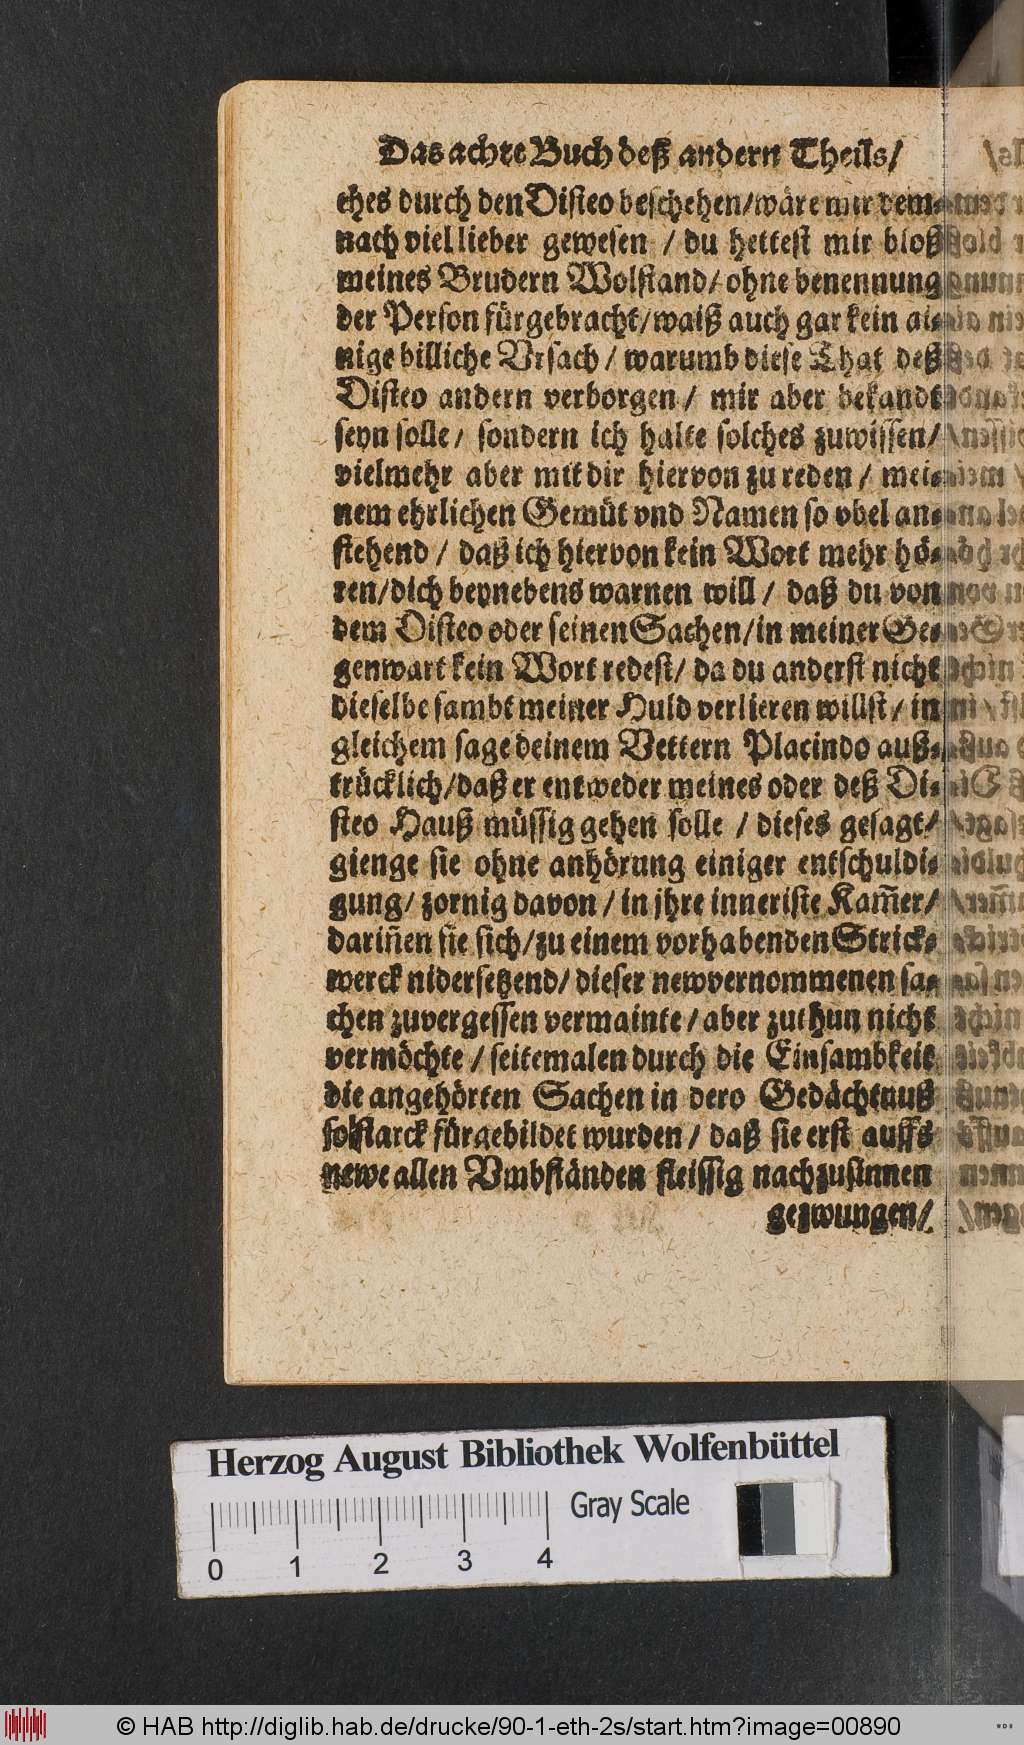 Das achte Buch deß andern Theils/
ches durch den Disteo beschehen/wäre mir dem-
nach viel lieber gewesen / du hettest mir bloß
meines Brudern Wolstand/ ohne benennung
der Person fürgebracht/waiß auch gar kein ai-
nige billiche Vrsach / warumb diese That deß
Disteo andern verborgen / mir aber bekandt
seyn solle / sondern ich halte solches zuwissen/
vielmehr aber mit dir hiervon zu reden / mei-
nem ehrlichen Gemüt vnd Namen so vbel an-
stehend / daß ich hiervon kein Wort mehr hö-
ren/dich beynebens warnen will / daß du von
dem Disteo oder seinen Sachen/in meiner Ge-
genwart kein Wort redest/ da du anderst nicht
dieselbe sambt meiner Huld verlieren willst / in
gleichem sage deinem Vettern Placindo auß-
trücklich/daß er entweder meines oder deß Di-
steo Hauß müssig gehen solle / dieses gesagt/
gienge sie ohne anhörung einiger entschuldi-
gung/ zornig davon / in jhre inneriste Kam̃er/
dariñen sie sich/zu einem vorhabenden Strick-
werck nidersetzend/ dieser newvernommenen sa-
chen zuvergessen vermainte / aber zuthun nicht
vermöchte / seitemalen durch die Einsambkeit
die angehörten Sachen in dero Gedächtnuß
so starck fürgebildet wurden / daß sie erst auffs
newe allen Vmbständen fleissig nachzusinnen
gezwungen/
Herzog August Bibliothek Wolfenbüttel
Gray Scale
0 1 2 3 4
© HAB http://diglib.hab.de/drucke/90-1-eth-2s/start.htm?image=00890